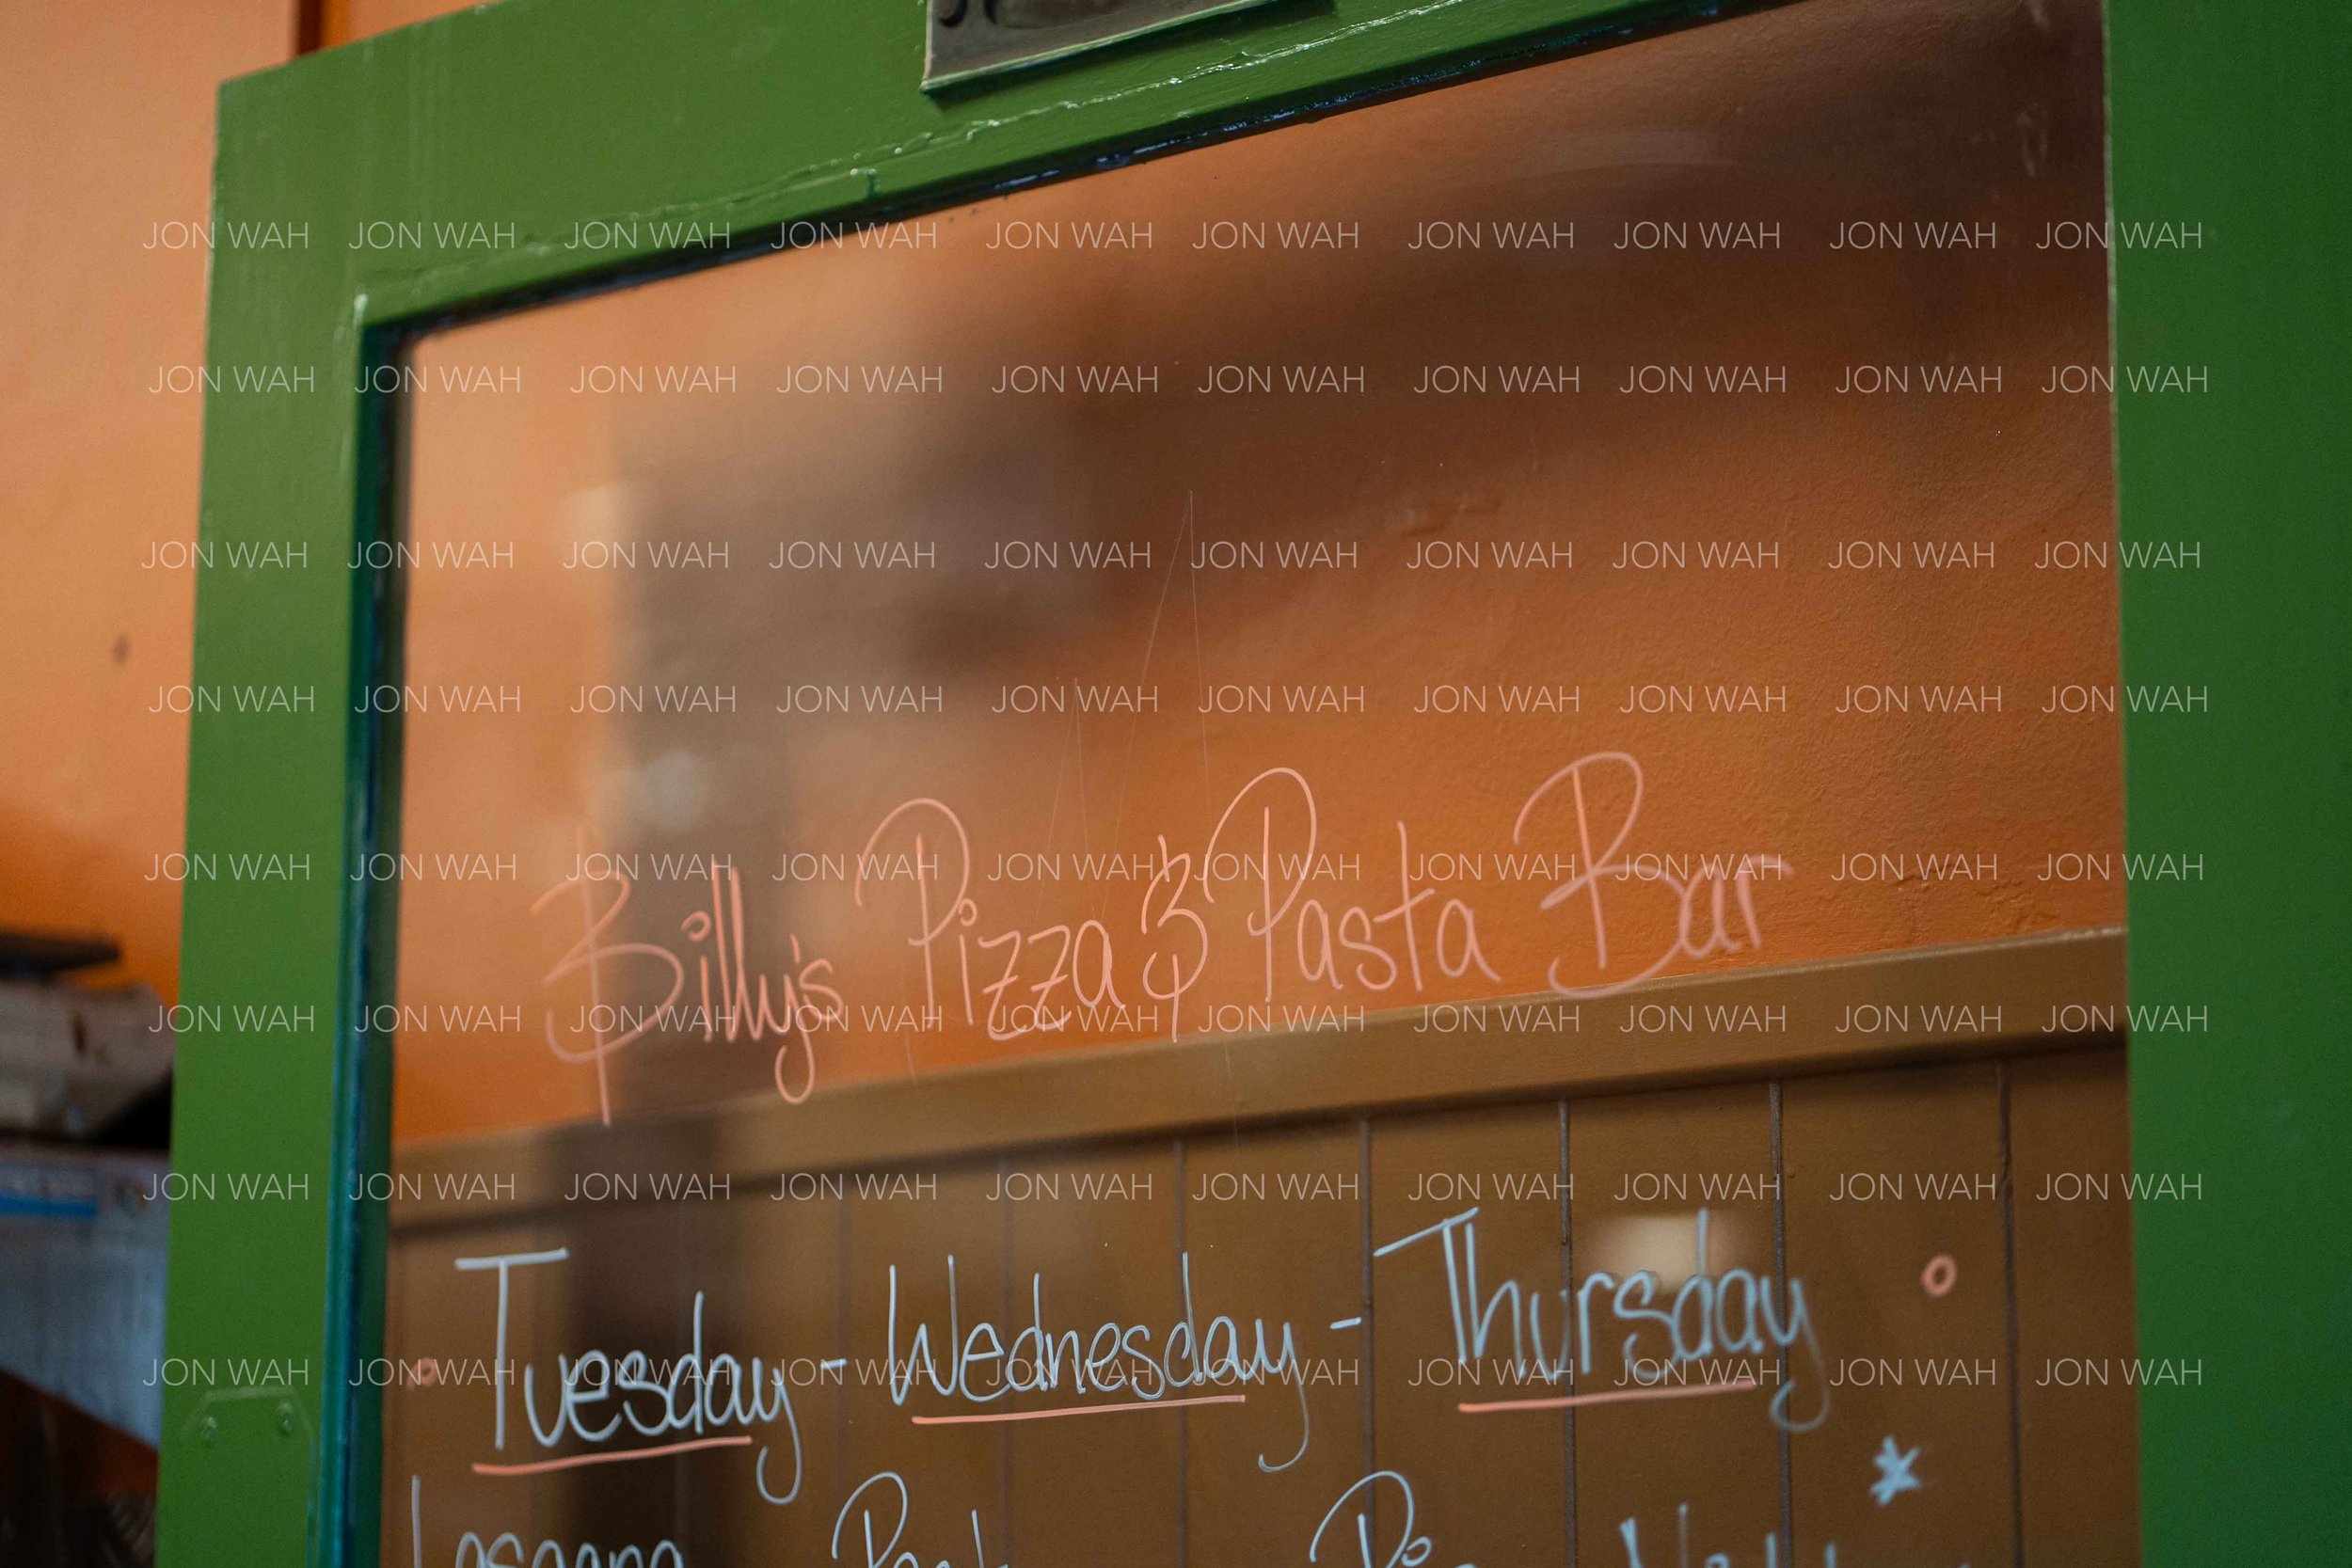 JON WAH JON WAH JON WAH JON WAH JON WAH JON WAH JON WAH JON WAH JON WAH JON WAH
JON WAH JON WAH JON WAH JON WAH JON WAH JON WAH JON WAH JON WAH JON WAH JON WAH
JON WAH JON WAH JON WAH JON WAH JON WAH JON WAH JON WAH JON WAH JON WAH JON WAH
JON WAH JON WAH JON WAH JON WAH JON WAH JON WAH JON WAH JON WAH JON WAH JON WAH
JON WAH JON WAH JON WAH JON WAH JON WAH JON WAH JON WAH JON WAH JON WAH JON WAH
Billy's Pizza & Pasta Bar
JON WAH JON WAH JON WAH JON WAH JON WAH JON WAH JON WAH JON WAH JON WAH JON WAH
JON WAH JON WAH JON WAH JON WAH JON WAH JON WAH JON WAH JON WAH JON WAH JON WAH
Tuesday - Wednesday - Thursday
JON WAH JON WAH JON WAH JON WAH JON WAH JON WAH JON WAH JON WAH JON WAH JON WAH